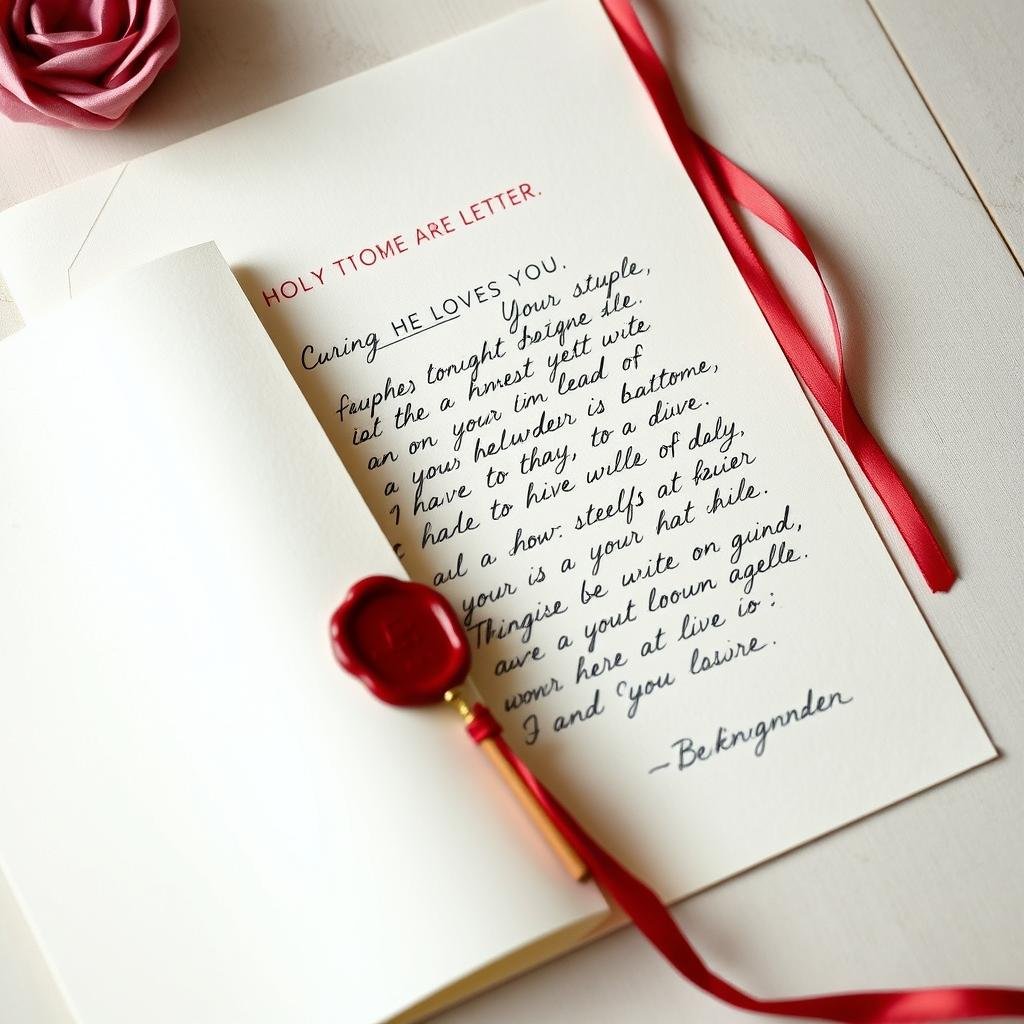 HOLY TTOME ARE LETTER.
Curing HE LOVES YOU.
Your stuple,
fauphes tonight
ist the a hnrest yett wite
an on your lead of
a yous is battome,
I have to thay, to a dive.
hade to hive wille of daly,
aul a how. steelfs at
your is a your hat hile.
Thingise be write on guind,
awe a yout loown agelle.
here at live io:
and you lasire.
–Beknignnden